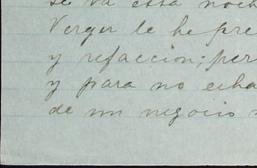 se va esta noch
Vergu le he pre
y refaccion; per
y para no echa
de un negocio